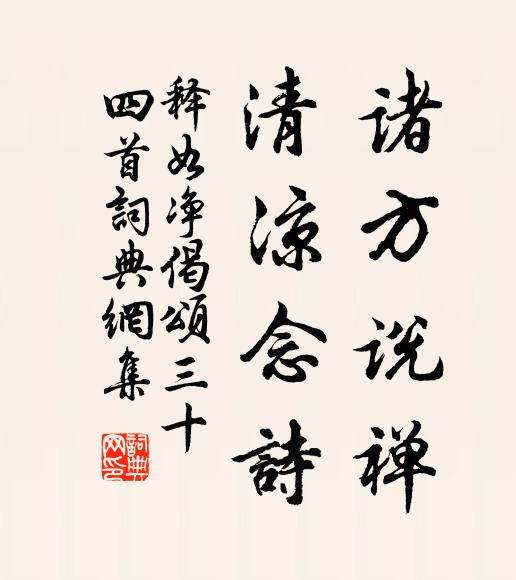 诸方说禅
清凉念詩
释如净偈頌三十
四首詞典網集
詞典網印